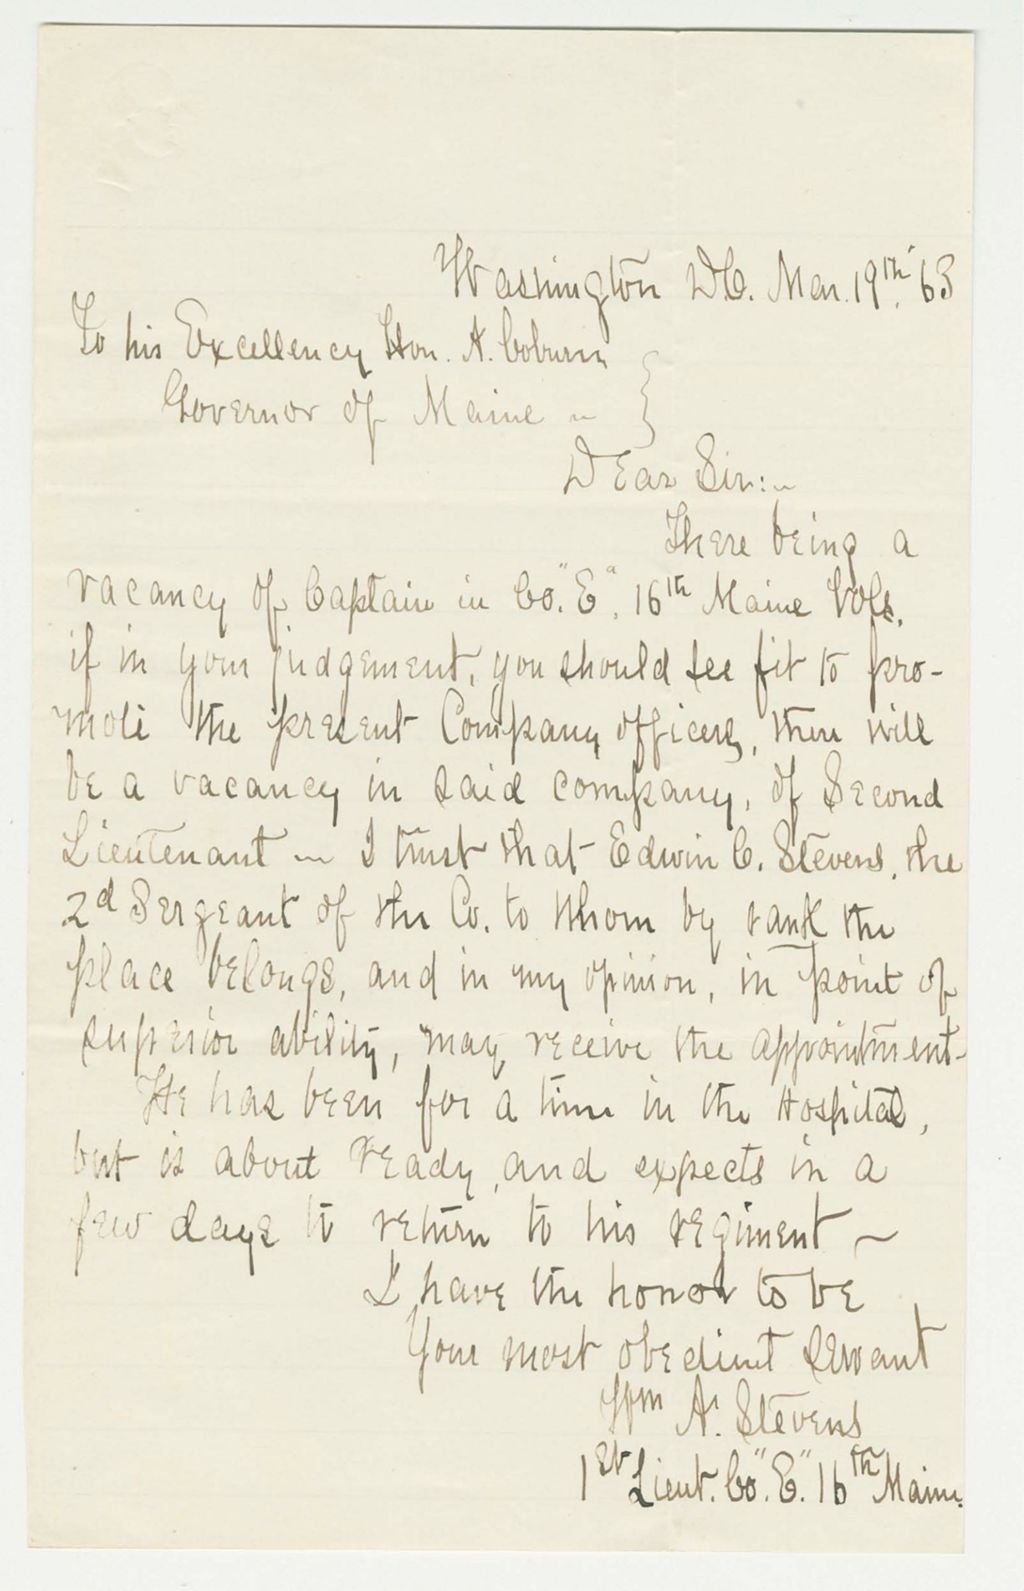 Washington D.C. Mar. 19th. 63
To his Excellency Hon. A. Coburn
Governor of Maine ~ }
Dear Sir:~
There being a
vacancy of Captain in Co. "E". 16th Maine Vols.
if in your judgement, you should see fit to pro-
mote the present Company officers, there will
be a vacancy in said company, of Second
Lieutenant ~ I trust that Edwin C. Stevens, the
2d Sergeant of the Co. to whom by rank the
place belongs, and in my opinion, in point of
superior ability, may receive the appointment-
He has been for a time in the Hospital,
but is about ready, and expects in a
few days to return to his regiment ~
I have the honor to be
Your most obedient servant
Wm A. Stevens
1st Lieut. Co. "E". 16th Maine.